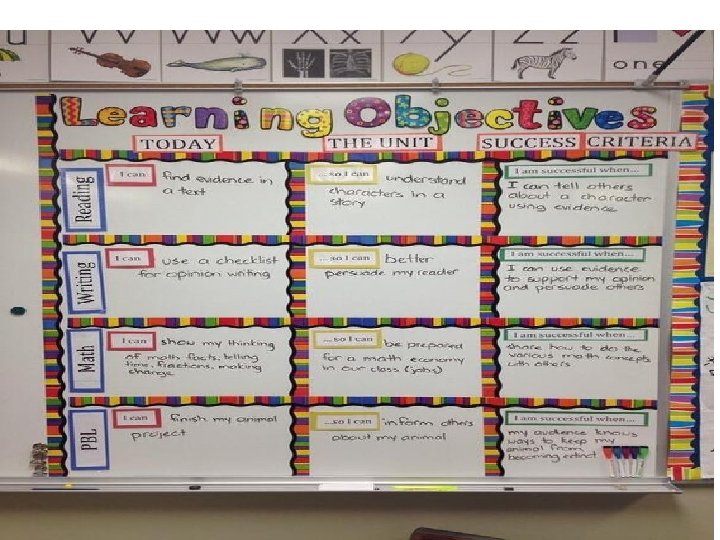 VV VVV Xx Yy Zz
one
Learning Objectives
TODAY THE UNIT SUCCESS CRITERIA
Reading
I can find evidence in
a text
...so I can understand
characters in a
story
I am successful when...
I can tell others
about a character
using evidence
Writing
I can use a checklist
for opinion writing
...so I can better
persuade my reader
I am successful when...
I can use evidence
to support my opinion
and persuade others
Math
I can show my thinking
of math facts, telling
time, fractions, making
change
...so I can be prepared
for a math economy
in our class (jobs)
I am successful when...
share how to do the
various math concepts
with others
PBL
I can finish my animal
project
...so I can inform others
about my animal
I am successful when...
my audience knows
ways to keep my
animal from
becoming extinct